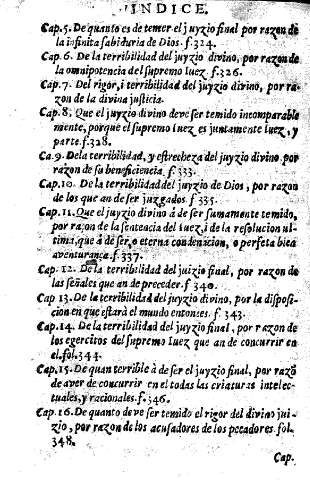 INDICE.
Cap.5. De quanto es de temer el juyzio final por razon de
la infinita sabiduria de Dios. f.324.
Cap.6. De la terribilidad del juyzio divino, por razon de
la omnipotencia del supremo Iuez. f.326.
Cap.7. Del rigor, i terribilidad del juyzio divino, por ra-
zon de la divina justicia.
Cap.8. Que el juyzio divino deve ser temido incomparable
mente, porque el supremo Iuez es juntamente Iuez, y
parte. f.328.
Ca.9. De la terribilidad, y estrecheza del juyzio divino por
razon de su beneficencia. f. 333.
Cap.10. De la terribilidad del juyzio de Dios, por razon
de los que an de ser juzgados. f 335.
Cap.11. Que el juyzio divino á de ser sumamente temido,
por razon de la sentencia del Iuez, i de la resolucion ul-
tima, que à de ser, o eterna condenacion, o perfeta bien
aventurança. f.337.
Cap. 12. De la terribilidad del juizio final, por razon de
las señales que an de preceder. f 340.
Cap 13. De la terribilidad del juyzio divino, por la disposi-
cion en que estará el mundo entonces. f. 343.
Cap.14. De la terribilidad del juyzio final, por razon de
los egercitos del supremo Iuez que an de concurrir en
el. fol. 344.
Cap.15. De quan terrible à de ser el juyzio final, por razõ
de aver de concurrir en el todas las criaturas intelec-
tuales, y racionales. f.346.
Cap.16. De quanto deve ser temido el rigor del divino jui-
zio, por razon de los acusadores de los pecadores. fol.
348.
Cap.